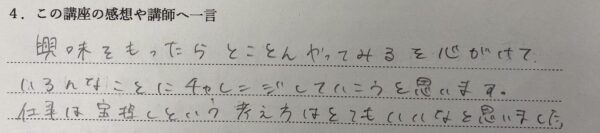 4．この講座の感想や講師へ一言
興味をもったら とことんやってみるを心がけて
いろんなことにチャレンジしていこうを思います。
仕事は宝探しという考え方はとてもいいなと思いました。